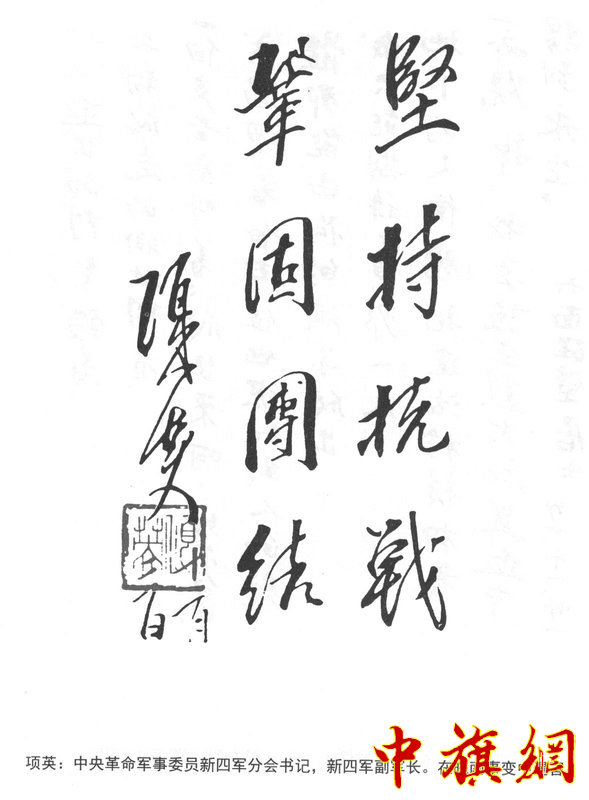 堅持抗戰
鞏固團結
項英
項英
项英：中央革命军事委员新四军分会书记，新四军副军长。在皖南事变中遇害
中旗網